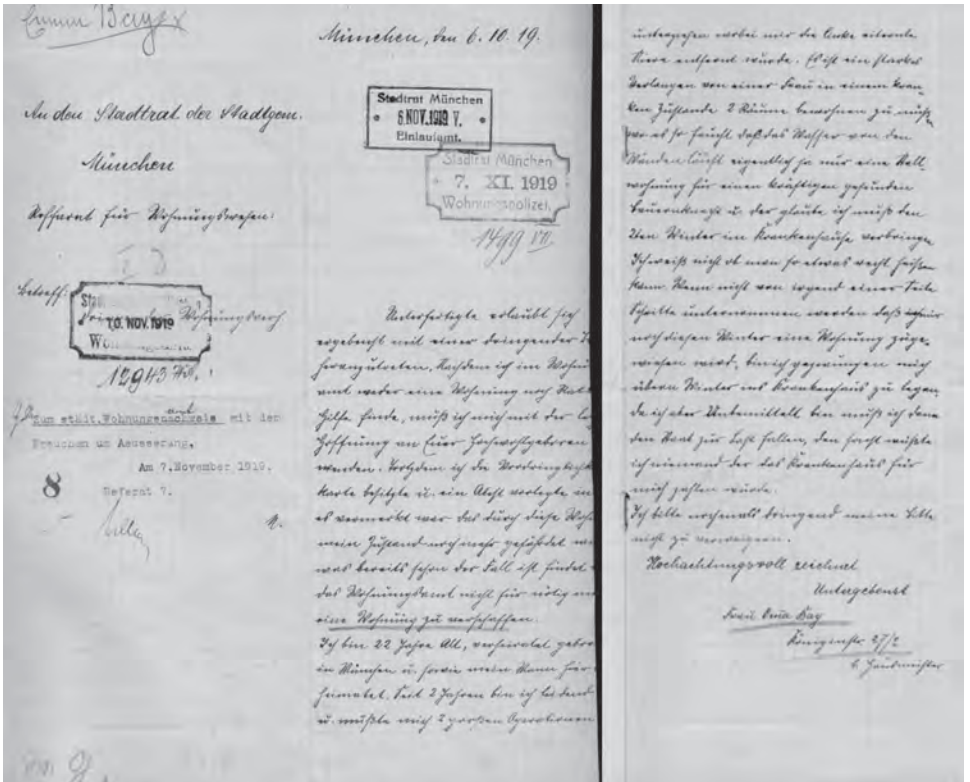 München, den 6.10.19.
An den Stadtrat der Stadtgem.
München
Referat für Wohnungswesen.
Stadtrat München
6. NOV. 1919 V.
Einlaufamt.
Stadtrat München
7. XI. 1919
Wohnungspolizei.
1499 VII
Betreff:
10. NOV. 1919
12943
Zum städt. Wohnungsnachweis mit dem
Ersuchen um Aeusserung.
Am 7. November 1919.
Referat 7.
8
Unterfertigte erlaubt sich
ergebenst mit einer dringenden
heranzutreten. Nachdem ich im Wohnu
amt weder eine Wohnung noch Rat
Hilfe finde, muß ich mich mit der
Hoffnung an Euer Hochwohlgeboren
wenden. Trotzdem ich die Vordringlichk
Karte besitze u. ein Atest vorlegte in
es vermerkt war das durch diese Woh
mein Zustand noch mehr gefährdet
was bereits schon der Fall ist findet
das Wohnungsamt nicht für nötig
eine Wohnung zu verschaffen.
Ich bin 22 Jahre Alt, verheiratet, gebor
in München u. sowie mein Mann hier
heimatet. Seit 2 Jahren bin ich leidend
u. mußte mich 2 großen Operationen
unterziehen wobei mir die linke eiternde
Niere entfernt wurde. Es ist ein starkes
Verlangen von einer Frau in einem kran-
ken Zustande 2 Räume bewohnen zu müß
wo es so feucht daß das Wasser von den
Wänden läuft eigentlich so nur eine
wohnung für einen kräftigen gesunden
Bauernknecht u. der glaubte ich muß den
2ten Winter im Krankenhause verbringen
Ich weiß nicht ob man so etwas recht heißen
kann. Wenn nicht von irgend einer Seite
Schritte unternommen werden daß mir
noch diesen Winter eine Wohnung zuge-
wiesen wird, bin ich gezwungen mich
übern Winter ins Krankenhaus zu legen,
da ich aber Unbemittelt bin muß ich dann
den Staat zur Last fallen, den sonst wüßte
ich niemand der das Krankenhaus für
mich zahlen würde.
Ich bitte nochmals dringend meine Bitte
nicht zu verweigern.
Hochachtungsvoll zeichnet
Untergebenst
Frau
Königinstr. 27/
b. Hausmeister